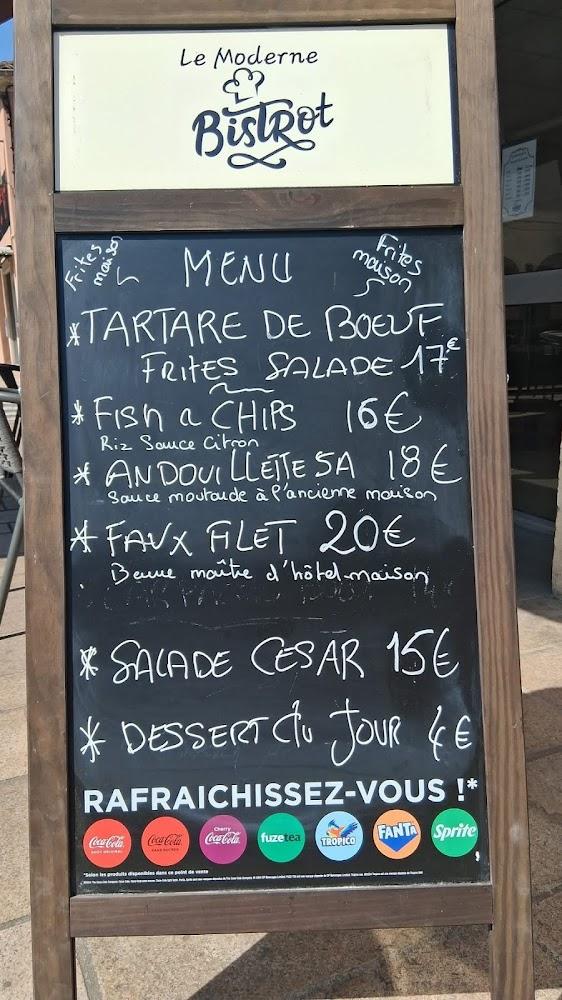 Le Moderne
Bistrot
Frites maison
MENU
Frites maison
*TARTARE DE BOEUF
FRITES SALADE 17€
* FISH a CHIPS 16€
Riz Sauce Citron
* ANDOUILLETTE 5A 18€
Sauce moutarde à l'ancienne maison
* FAUX FILET 20€
Beurre maître d'hôtel maison
* SALADE CESAR 15€
* DESSERT du JOUR 4€
RAFRAICHISSEZ-VOUS !*
Coca-Cola GOÛT ORIGINAL
Coca-Cola SANS SUCRES
Cherry Coca-Cola
fuzetea
TROPICO
FANTA
Sprite
*Selon les produits disponibles dans ce point de vente